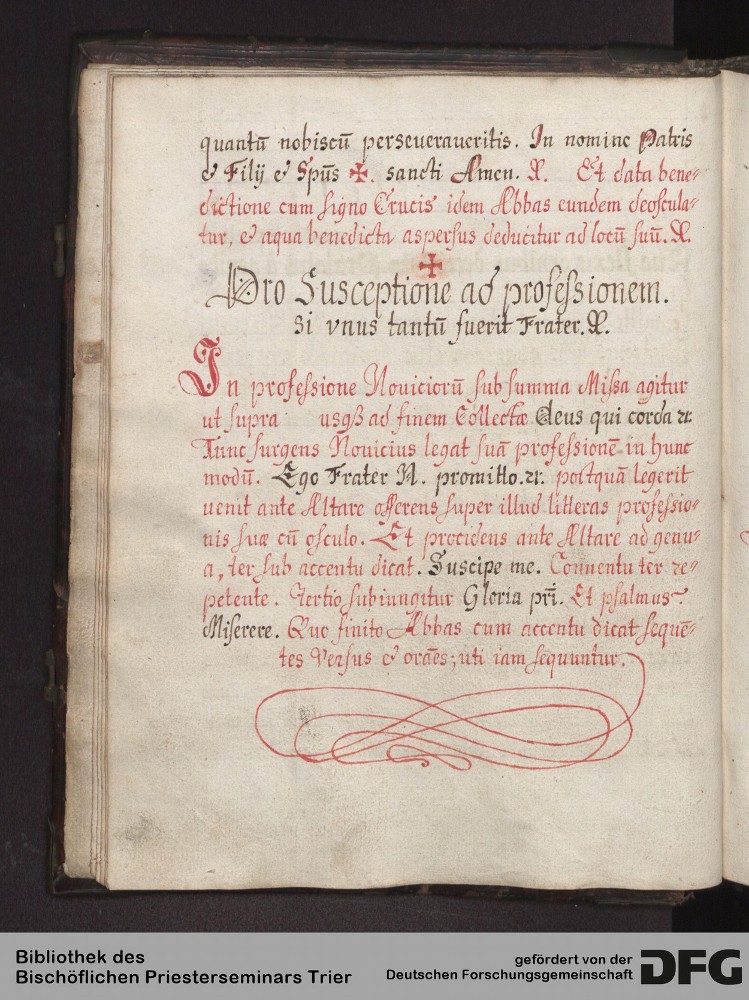 quantū nobiscū perseueraueritis. In nomine Patris
& Filij & Spūs ✠. sancti Amen. ℟. Et data bene=
dictione cum signo Crucis idem Abbas eundem deoscula=
tur, & aqua benedicta aspersus deducitur ad locū suū. ℟.
✠
Pro Susceptione ad professionem.
Si vnus tantū fuerit Frater. ℟.
In professione Nouiciorū sub summa Missa agitur
ut supra usqß ad finem Collectæ Deus qui corda ꝛc.
Tunc surgens Nouicius legat suā professionē in hunc
modū. Ego Frater N. promitto. ꝛc. postquā legerit
uenit ante Altare offerens super illud litteras professio=
nis suæ cū osculo. Et procidens ante Altare ad genu=
a, ter sub accentu dicat. Suscipe me. Conuentu ter re=
petente. Tertio subiungitur Gloria pri̅. Et psalmus
Miserere. Quo finito Abbas cum accentu dicat sequē=
tes Versus & oraēs; uti iam sequuntur.
Bibliothek des
Bischöflichen Priesterseminars Trier
gefördert von der
Deutschen Forschungsgemeinschaft
DFG